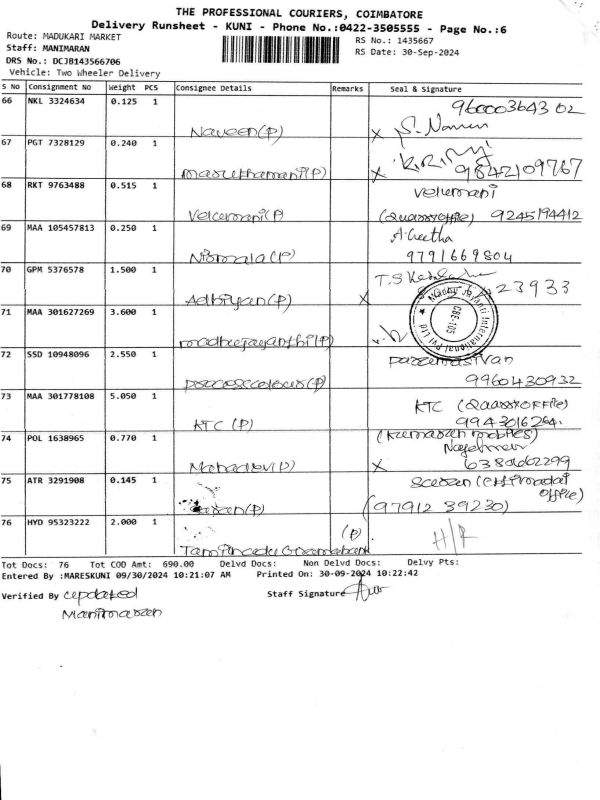 THE PROFESSIONAL COURIERS, COIMBATORE
Delivery Runsheet - KUNI - Phone No.:0422-3505555 - Page No.:6
Route: MADUKARI MARKET
RS No.: 1435667
Staff: MANIMARAN
RS Date: 30-Sep-2024
DRS No.: DCJB143566706
Vehicle: Two Wheeler Delivery
S No Consignment No Weight PCS Consignee Details Remarks Seal & Signature
66 NKL 3324634 0.125 1 960003643 02
Naveen(P) x S. Naveen
67 PGT 7328129 0.240 1
Maruthamani(P) x 9842109767
68 RKT 9763488 0.515 1 Velumani
Velumani(P) 9245194412
69 MAA 105457813 0.250 1 A. Geetha
Nirmala(P) 9791669804
70 GPM 5376578 1.500 1 T.S 23933
Adhiyan(P) x
71 MAA 301627269 3.600 1 Madhu Jayanti International Pvl Ltd CBE-105
madhujayanthi(P)
72 SSD 10948096 2.550 1 Paramasivan
(P) 9960430932
73 MAA 301778108 5.050 1 KTC
KTC (P) 9943016264.
74 POL 1638965 0.770 1 (Kumaran mobiles)
Mahadev(P) x 6380662299
75 ATR 3291908 0.145 1 office)
(P) (97912 39230)
76 HYD 95323222 2.000 1 (P) H/R
Tamilnadu Gramabank
Tot Docs: 76 Tot COD Amt: 690.00 Delvd Docs: Non Delvd Docs: Delvy Pts:
Entered By :MARESKUNI 09/30/2024 10:21:07 AM Printed On: 30-09-2024 10:22:42
Verified By updated Staff Signature
Manimaran